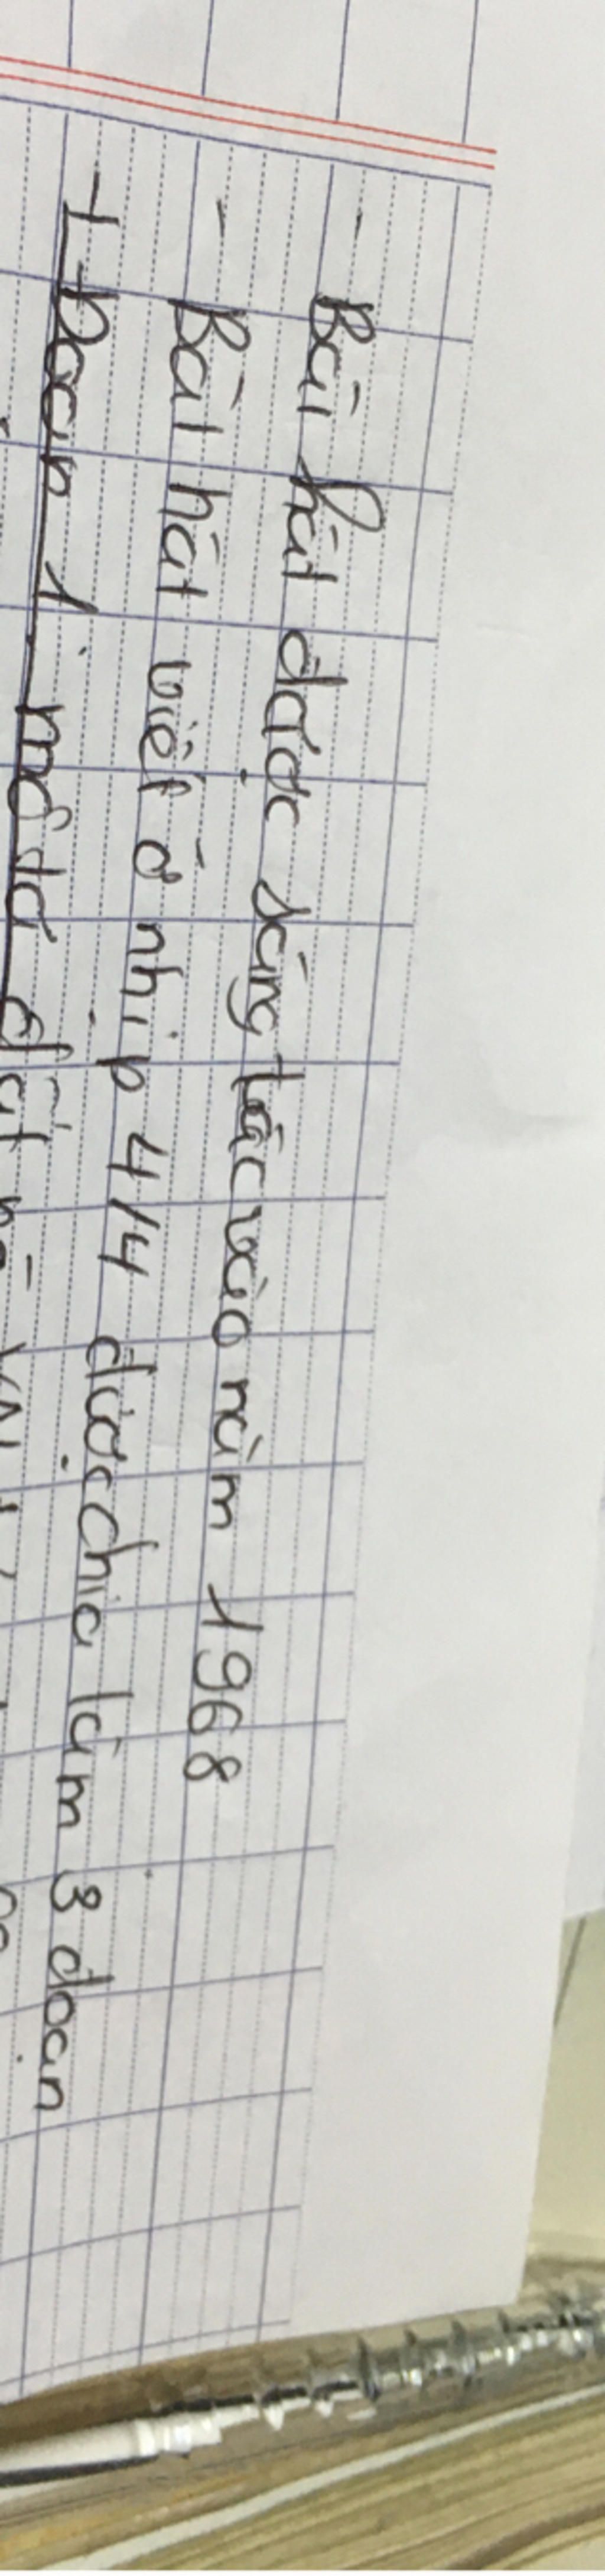 - Bài hát được sáng tác vào năm 1968
- Bài hát viết ở nhịp 4/4 được chia làm 3 đoạn
+ Đoạn 1: mở đầ